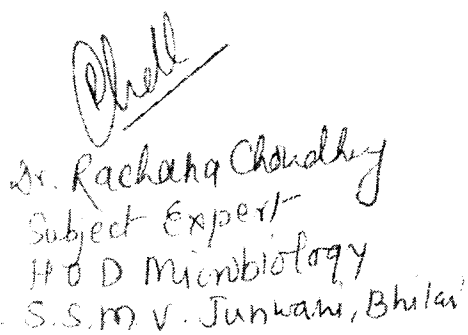 Dr. Rachana Choudhary
Subject Expert
H O D Microbiology
S.S.M.V. Junwani, Bhilai